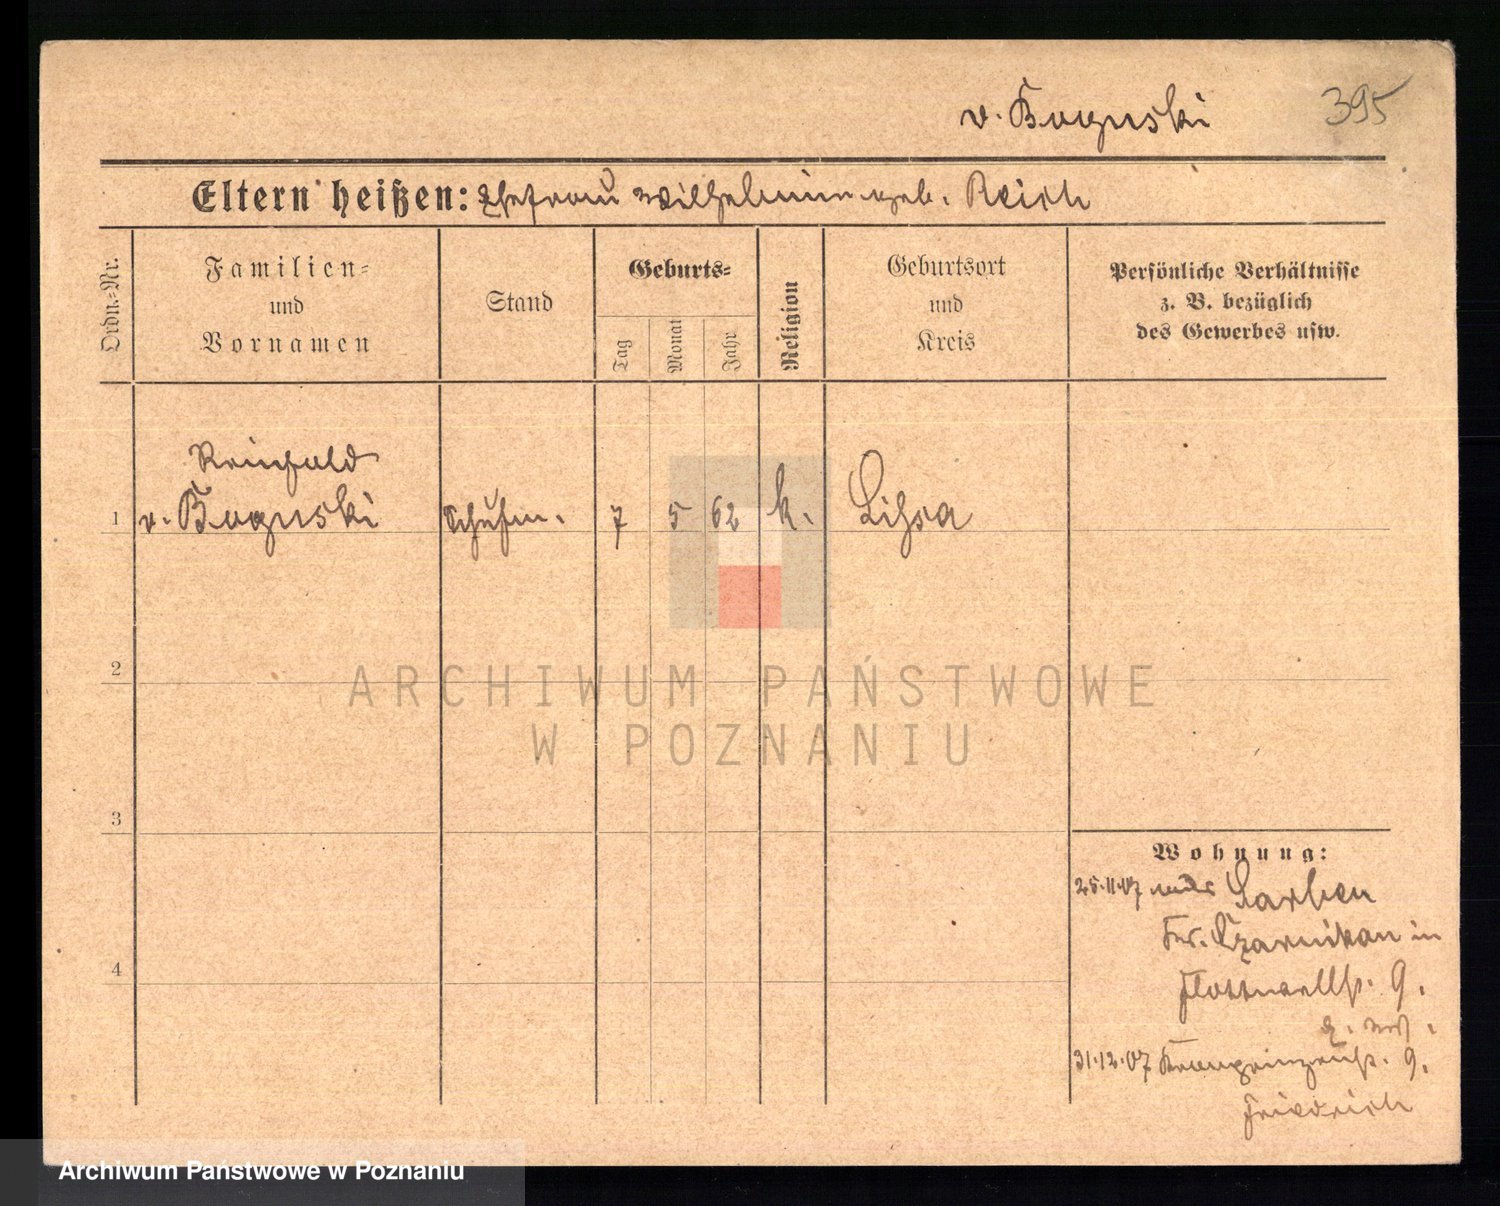 v. Boguski 395
Eltern heißen: Ehefrau Wilhelmine geb. Reich
Ordn.-Nr.
Familien-
und
Vornamen
Stand
Geburts-
Tag
Monat
Jahr
Religion
Geburtsort
und
Kreis
Persönliche Verhältnisse
z. B. bezüglich
des Gewerbes usw.
Reinhold
1 v. Boguski Schuhm. 7 5 62 k. Lissa
2
ARCHIWUM PAŃSTWOWE
W POZNANIU
3
Wohnung:
25.11.07 Sarben
Kr. Czarnikau in
Flottwellstr. 9.
4
31.12.07 Kronprinzenstr. 9.
Friedrich
Archiwum Państwowe w Poznaniu